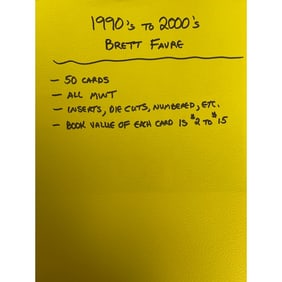 1990's to 2000's
Brett Favre
- 50 cards
- All mint
- Inserts, die cuts, numbered, etc.
- Book value of each card is $2 to $15